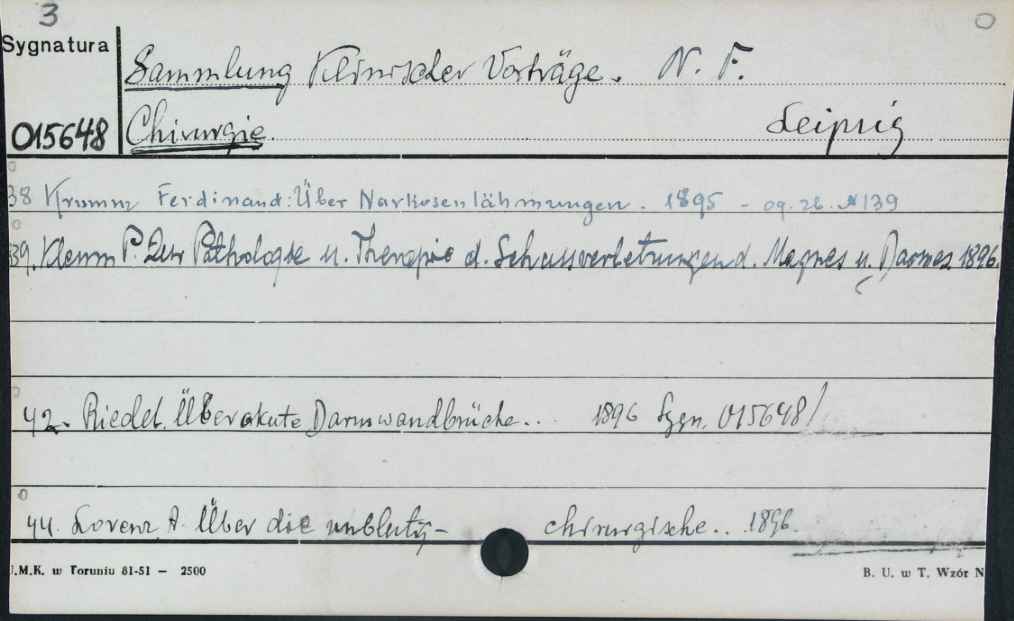 3
Sygnatura
Sammlung Klinischer Vorträge. N. F.
015648
Chirurgie. Leipzig
38 Krumm Ferdinand: Über Narkosenlähmungen. 1895 - 139
39. Klemm P. Zur Pathologie u. Therapie d. Schussverletzungen d. Magnes u. Darmes 1896.
42. Riedel. Über akute Darmwandbrüche... 1896 Sygn. 015648/
44. Lorenz A. Über die unblutig- chirurgische.. 1896.
U.M.K. w Toruniu 81-51 — 2500
B. U. w T. Wzór N